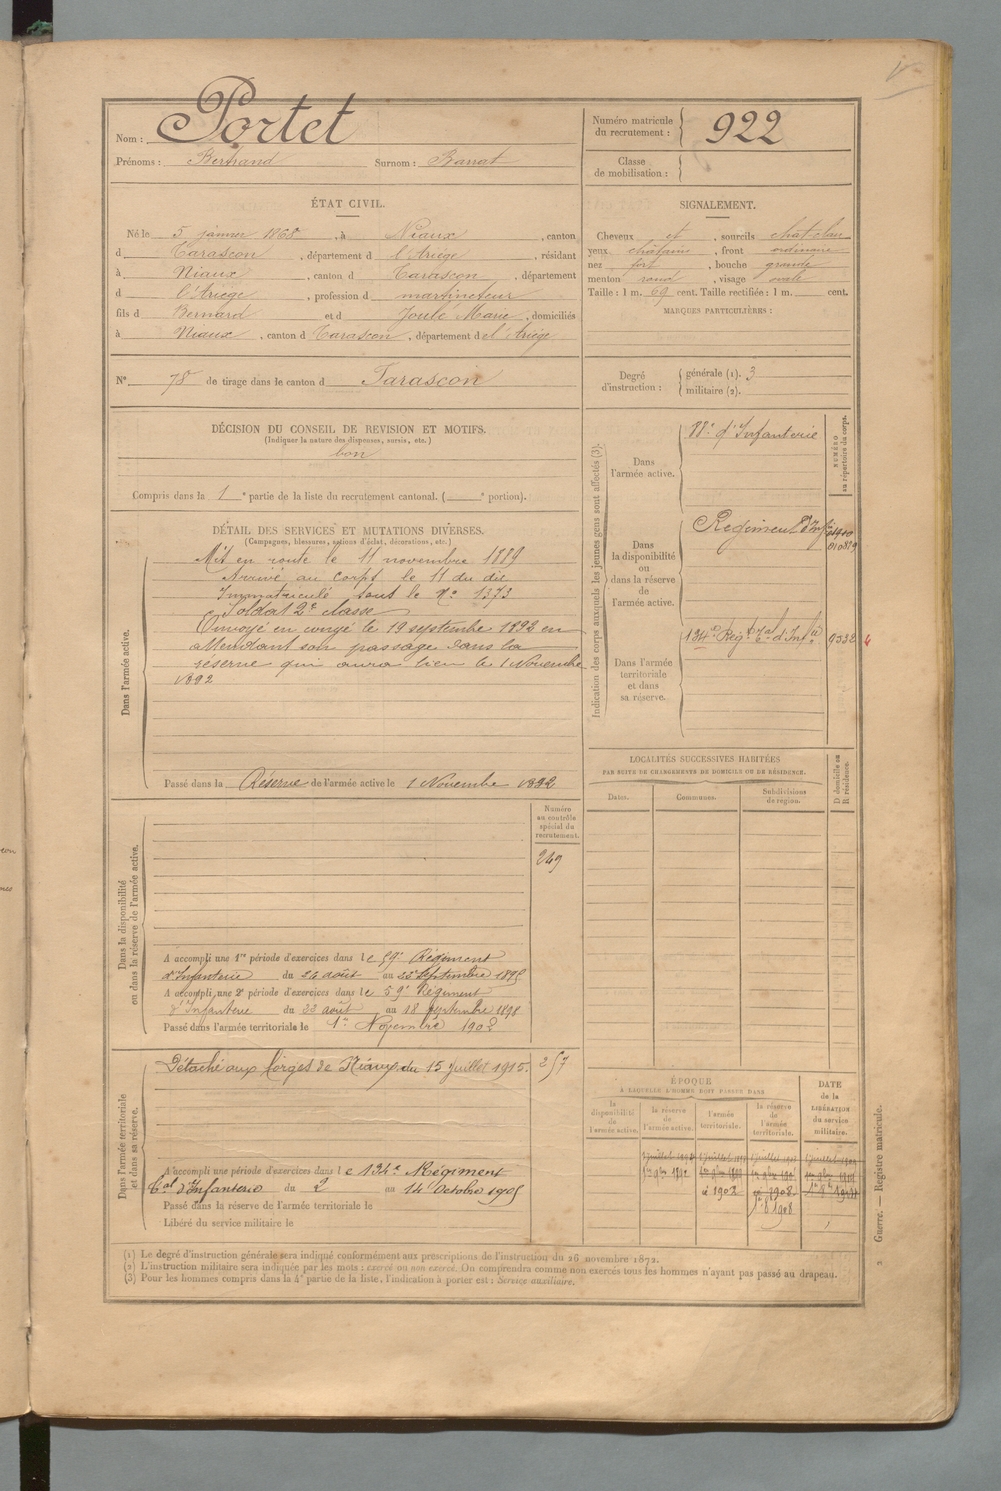 Nom : Portet
Prénoms : Bertrand Surnom : Barrat
Numéro matricule du recrutement : 922
Classe de mobilisation :
ÉTAT CIVIL.
Né le 5 janvier 1868, à Niaux, canton
d Tarascon, département d l'Ariège, résidant
à Niaux, canton d Tarascon, département
d l'Ariège, profession d martineteur
fils d Bernard et d Joulé Marie, domiciliés
à Niaux, canton d Tarascon, département d el'Ariège
N° 78 de tirage dans le canton d Tarascon
SIGNALEMENT.
Cheveux et, sourcils chat-clair
yeux châtains, front ordinaire
nez fort, bouche grande
menton rond, visage ovale
Taille : 1 m. 69 cent. Taille rectifiée : 1 m. cent.
MARQUES PARTICULIÈRES :
Degré d'instruction : générale (1). 3
militaire (2).
DÉCISION DU CONSEIL DE REVISION ET MOTIFS.
(Indiquer la nature des dispenses, sursis, etc.)
bon
Compris dans la 1 e partie de la liste du recrutement cantonal. ( e portion).
DÉTAIL DES SERVICES ET MUTATIONS DIVERSES.
(Campagnes, blessures, actions d'éclat, décorations, etc.)
Dans l'armée active.
Mis en route le 11 novembre 1889
Arrivé au corps le 11 du dit
Immatriculé sous le N° 1373
Soldat 2e classe
Envoyé en congé le 19 septembre 1892 en
attendant son passage dans la
réserve qui aura lieu le 1 Novembre
1892
Passé dans la Réserve de l'armée active le 1 Novembre 1892
Indication des corps auxquels les jeunes gens sont affectés (3).
NUMÉRO au répertoire du corps.
Dans l'armée active.
88e d'Infanterie
Dans la disponibilité ou dans la réserve de l'armée active.
Régiment d'Infie
010819
Dans l'armée territoriale et dans sa réserve.
134e Régt Tal d'Infie
9332
LOCALITÉS SUCCESSIVES HABITÉES
PAR SUITE DE CHANGEMENTS DE DOMICILE OU DE RÉSIDENCE.
Dates. Communes. Subdivisions de région. D domicile ou R résidence.
Dans la disponibilité ou dans la réserve de l'armée active.
Numéro au contrôle spécial du recrutement.
249
A accompli une 1re période d'exercices dans le 59e Régiment
d'Infanterie du 26 août au 22 septembre 1895
A accompli une 2e période d'exercices dans le 59e Régiment
d'Infanterie du 22 août au 18 septembre 1898
Passé dans l'armée territoriale le 1er Novembre 1902
Dans l'armée territoriale et dans sa réserve.
Détaché aux forges de Niaux du 15 juillet 1915.
257
A accompli une période d'exercices dans le 134e Régiment
Tal d'Infanterie du 2 au 14 Octobre 1905
Passé dans la réserve de l'armée territoriale le
Libéré du service militaire le
ÉPOQUE
À LAQUELLE L'HOMME DOIT PASSER DANS
la disponibilité de l'armée active. la réserve de l'armée active. l'armée territoriale. la réserve de l'armée territoriale.
DATE de la LIBÉRATION du service militaire.
1er 9bre 1892
1902
1908
(1) Le degré d'instruction générale sera indiqué conformément aux prescriptions de l'instruction du 26 novembre 1872.
(2) L'instruction militaire sera indiquée par les mots : exercé ou non exercé. On comprendra comme non exercés tous les hommes n'ayant pas passé au drapeau.
(3) Pour les hommes compris dans la 4e partie de la liste, l'indication à porter est : Service auxiliaire.
Guerre. — Registre matricule.